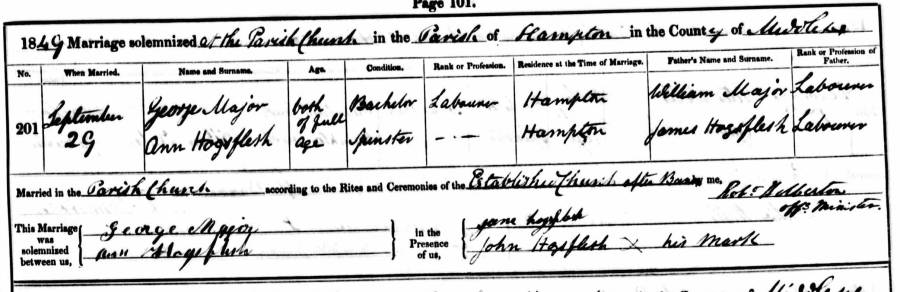 Page 101.
1849 Marriage solemnized at the Parish Church in the Parish of Hampton in the County of Middlesex
No. When Married. Name and Surname. Age. Condition. Rank or Profession. Residence at the Time of Marriage. Father's Name and Surname. Rank or Profession of Father.
201 September 29 George Major both of full age Bachelor Labourer Hampton William Major Labourer
Ann Hogsflesh Spinster — - — Hampton James Hogsflesh Labourer
Married in the Parish Church according to the Rites and Ceremonies of the Established Church after Banns me,
Robt
Offg. Minister.
This Marriage was solemnized between us, George Major
Ann Hogsflesh
in the Presence of us, Jane hogsflesh
John Hogsflesh X his mark